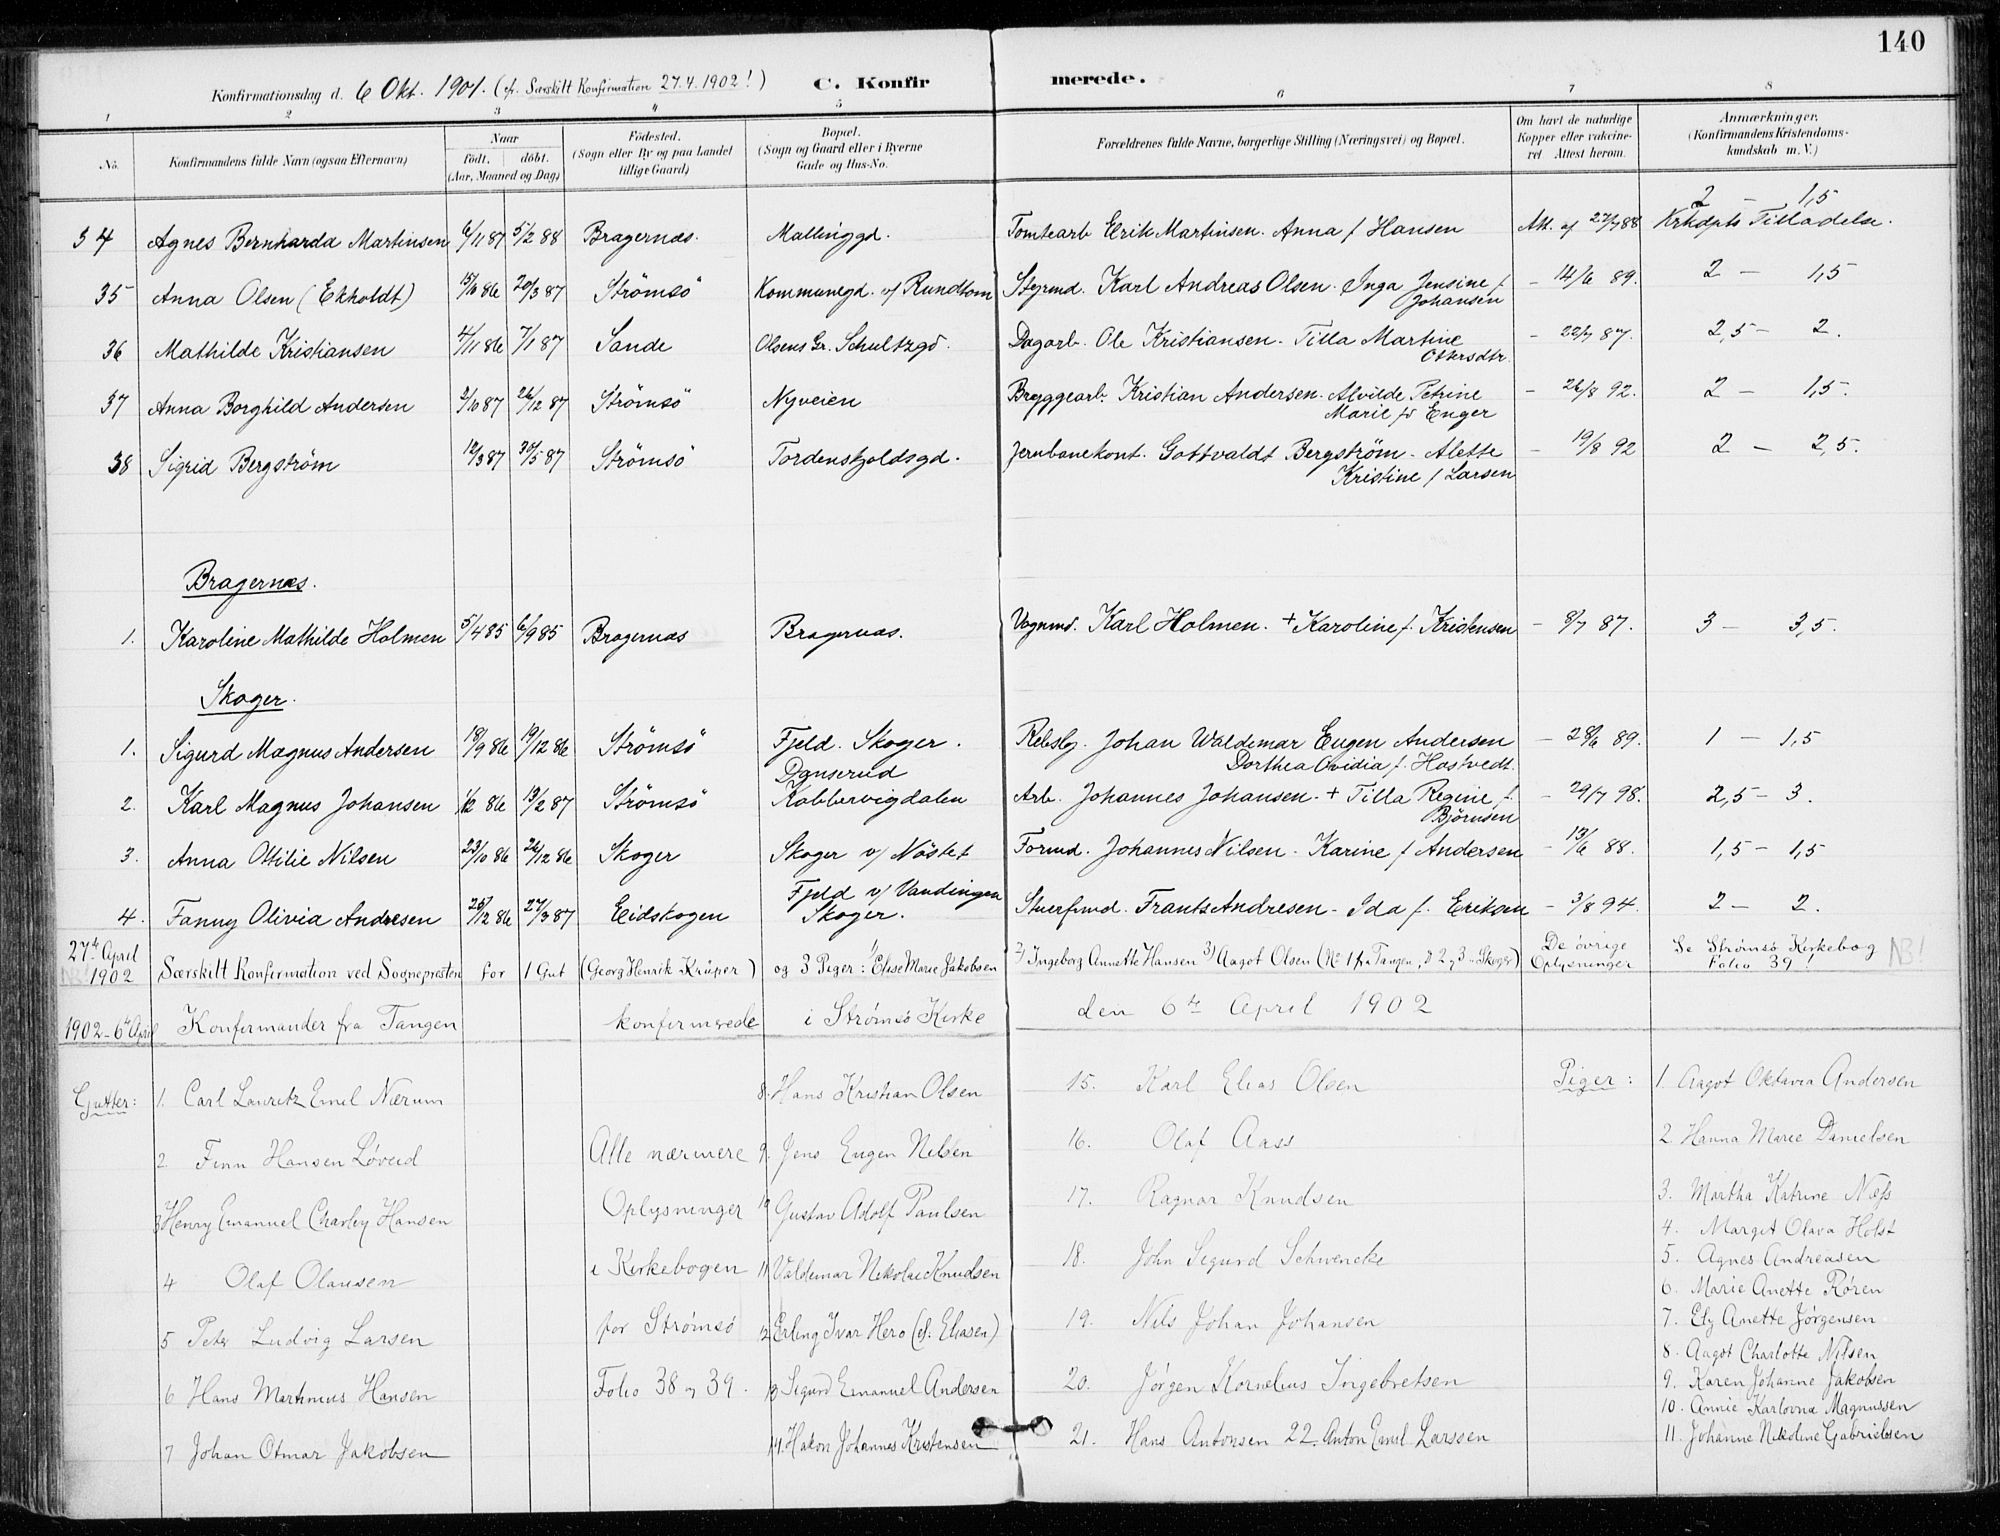 140
Konfirmationsdag d. 6 Okt. 1901. (cfr. Særskilt Konfirmation 27.4.1902!) C. Konfirmerede.
1 2 3 4 5 6 7 8
No. Konfirmandens fulde Navn (ogsaa Efternavn) Naar født, døbt. (Aar, Maaned og Dag) Fødested. (Sogn eller By og paa Landet tillige Gaard) Bopæl. (Sogn og Gaard eller i Byerne Gade og Hus-No. Forældrenes fulde Navne, borgerlige Stilling (Næringsvei) og Bopæl. Om havt de naturlige Kopper eller vakcineret Attest herom. Anmærkninger. (Konfirmandens Kristendomskundskab m. V.)
34 Agnes Bernharda Martinsen 6/11 87 5/2 88 Bragernæs. Mallinggd. Tomtearb Erik Martinsen. Anna f Hansen Att. af 27/7 88 2 – 1,5 Krkdpts Tilladelse.
35 Anna Olsen (Ekholdt) 15/10 86 20/3 87 Strömsö Kommunegd. v/ Rundtom Styrmd. Karl Andreas Olsen. Inga Jensine f. Johansen – 14/6 89. 2 – 1,5
36 Mathilde Kristiansen 4/11 86 7/1 87 Sande Olsens Gr. Schultzgd. Dagarb. Ole Kristiansen. Tilla Martine Ottersdtr. – 22/7 87. 2,5 – 2.
37 Anna Borghild Andersen 2/10 87 26/12 87 Strömsö Nyveien Bryggearb. Kristian Andersen. Alvilde Petrine Marie f. Enger – 26/8 92. 2 – 1,5.
38 Sigrid Bergström 12/3 87 30/5 87 Strömsö Tordenskjoldsgd. Jernbanekont. Gottvaldt Bergström – Alette Kristine f Larsen – 19/8 92 2 – 2,5.
Bragernæs.
1. Karoline Mathilde Holmen 5/4 85 6/9 85 Bragernæs Bragernæs. Vognmd. Karl Holmen. + Karoline f. Kristensen – 8/7 87. 3 – 3,5.
Skoger.
1. Sigurd Magnus Andersen 18/9 86 19/12 86 Strömsö Fjeld. Skoger. Rebslg. Johan Waldemar Eugen Andersen Dorthea Ovidia f. Hostvedt. – 28/6 89. 1 – 1,5
2. Karl Magnus Johansen 1/12 86 13/2 87 Strömsö Danserud Kobbervigdalen Arb. Johannes Johansen. + Tilla Regine f. Björnsen – 29/7 98. 2,5 – 3.
3. Anna Ottilie Nilsen 23/10 86 26/12 86 Skoger Skoger v/ Nöstet Formd. Johannes Nilsen. Karine f Andersen – 13/6 88. 1,5 – 1,5
4. Fanny Olivia Andresen 25/12 86 27/3 87 Eidskogen Fjeld v/ Vandingen Skoger. Stuerfmd. Frants Andresen – Ida f. Eriksen – 3/8 94. 2 – 2.
27de April 1902 NB! Særskilt Konfirmation ved Sognepresten for 1 Gut (Georg Henrik Krüger) og 3 Piger: 1) Elise Marie Jakobsen 2) Ingeborg Annette Hansen 3) Aagot Olsen (No 1 fra Tangen, 2 og 3 Skoger) De øvrige Oplysninger Se Strømsø Kirkebog Folio 39! NB!
1902 – 6te April Konfirmander fra Tangen konfirmerede i Strømsø Kirke den 6te April 1902
Gutter: 1. Carl Lauritz Emil Nærum
2 Finn Hansen Løveid
3 Henry Emanuel Charley Hansen
4 Olaf Olausen
5 Peter Ludvig Larsen
6 Hans Martinius Hansen
7 Johan Otmar Jakobsen
Alle nærmere
Oplysninger
i Kirkebogen
for Strømsø
Folio 38 og 39.
8. Hans Kristian Olsen
9. Jens Eugen Nilsen
10 Gustav Adolf Paulsen
11 Valdemar Nikolai Knudsen
12 Erling Ivar Hero (cf. Eliasen)
13 Sigurd Emanuel Andersen
14. Hakon Johannes Kristensen
15. Karl Elias Olsen
16. Olaf Aass
17. Ragnar Knudsen
18. John Sigurd Schwencke
19. Nils Johan Johansen
20. Jørgen Kornelius Ingebretsen
21. Hans Antonsen 22. Anton Emil Larssen
Piger: 1. Aagot Oktavia Andersen
2. Hanna Marie Danielsen
3. Martha Katrine Næss
4. Margit Olava Holst
5. Agnes Andreasen
6. Marie Anette Røren
7. Ely Anette Jørgensen
8. Aagot Charlotte Nilsen
9. Karen Johanne Jakobsen
10. Annie Karlovna Magnussen
11. Johanne Nikoline Gabrielsen